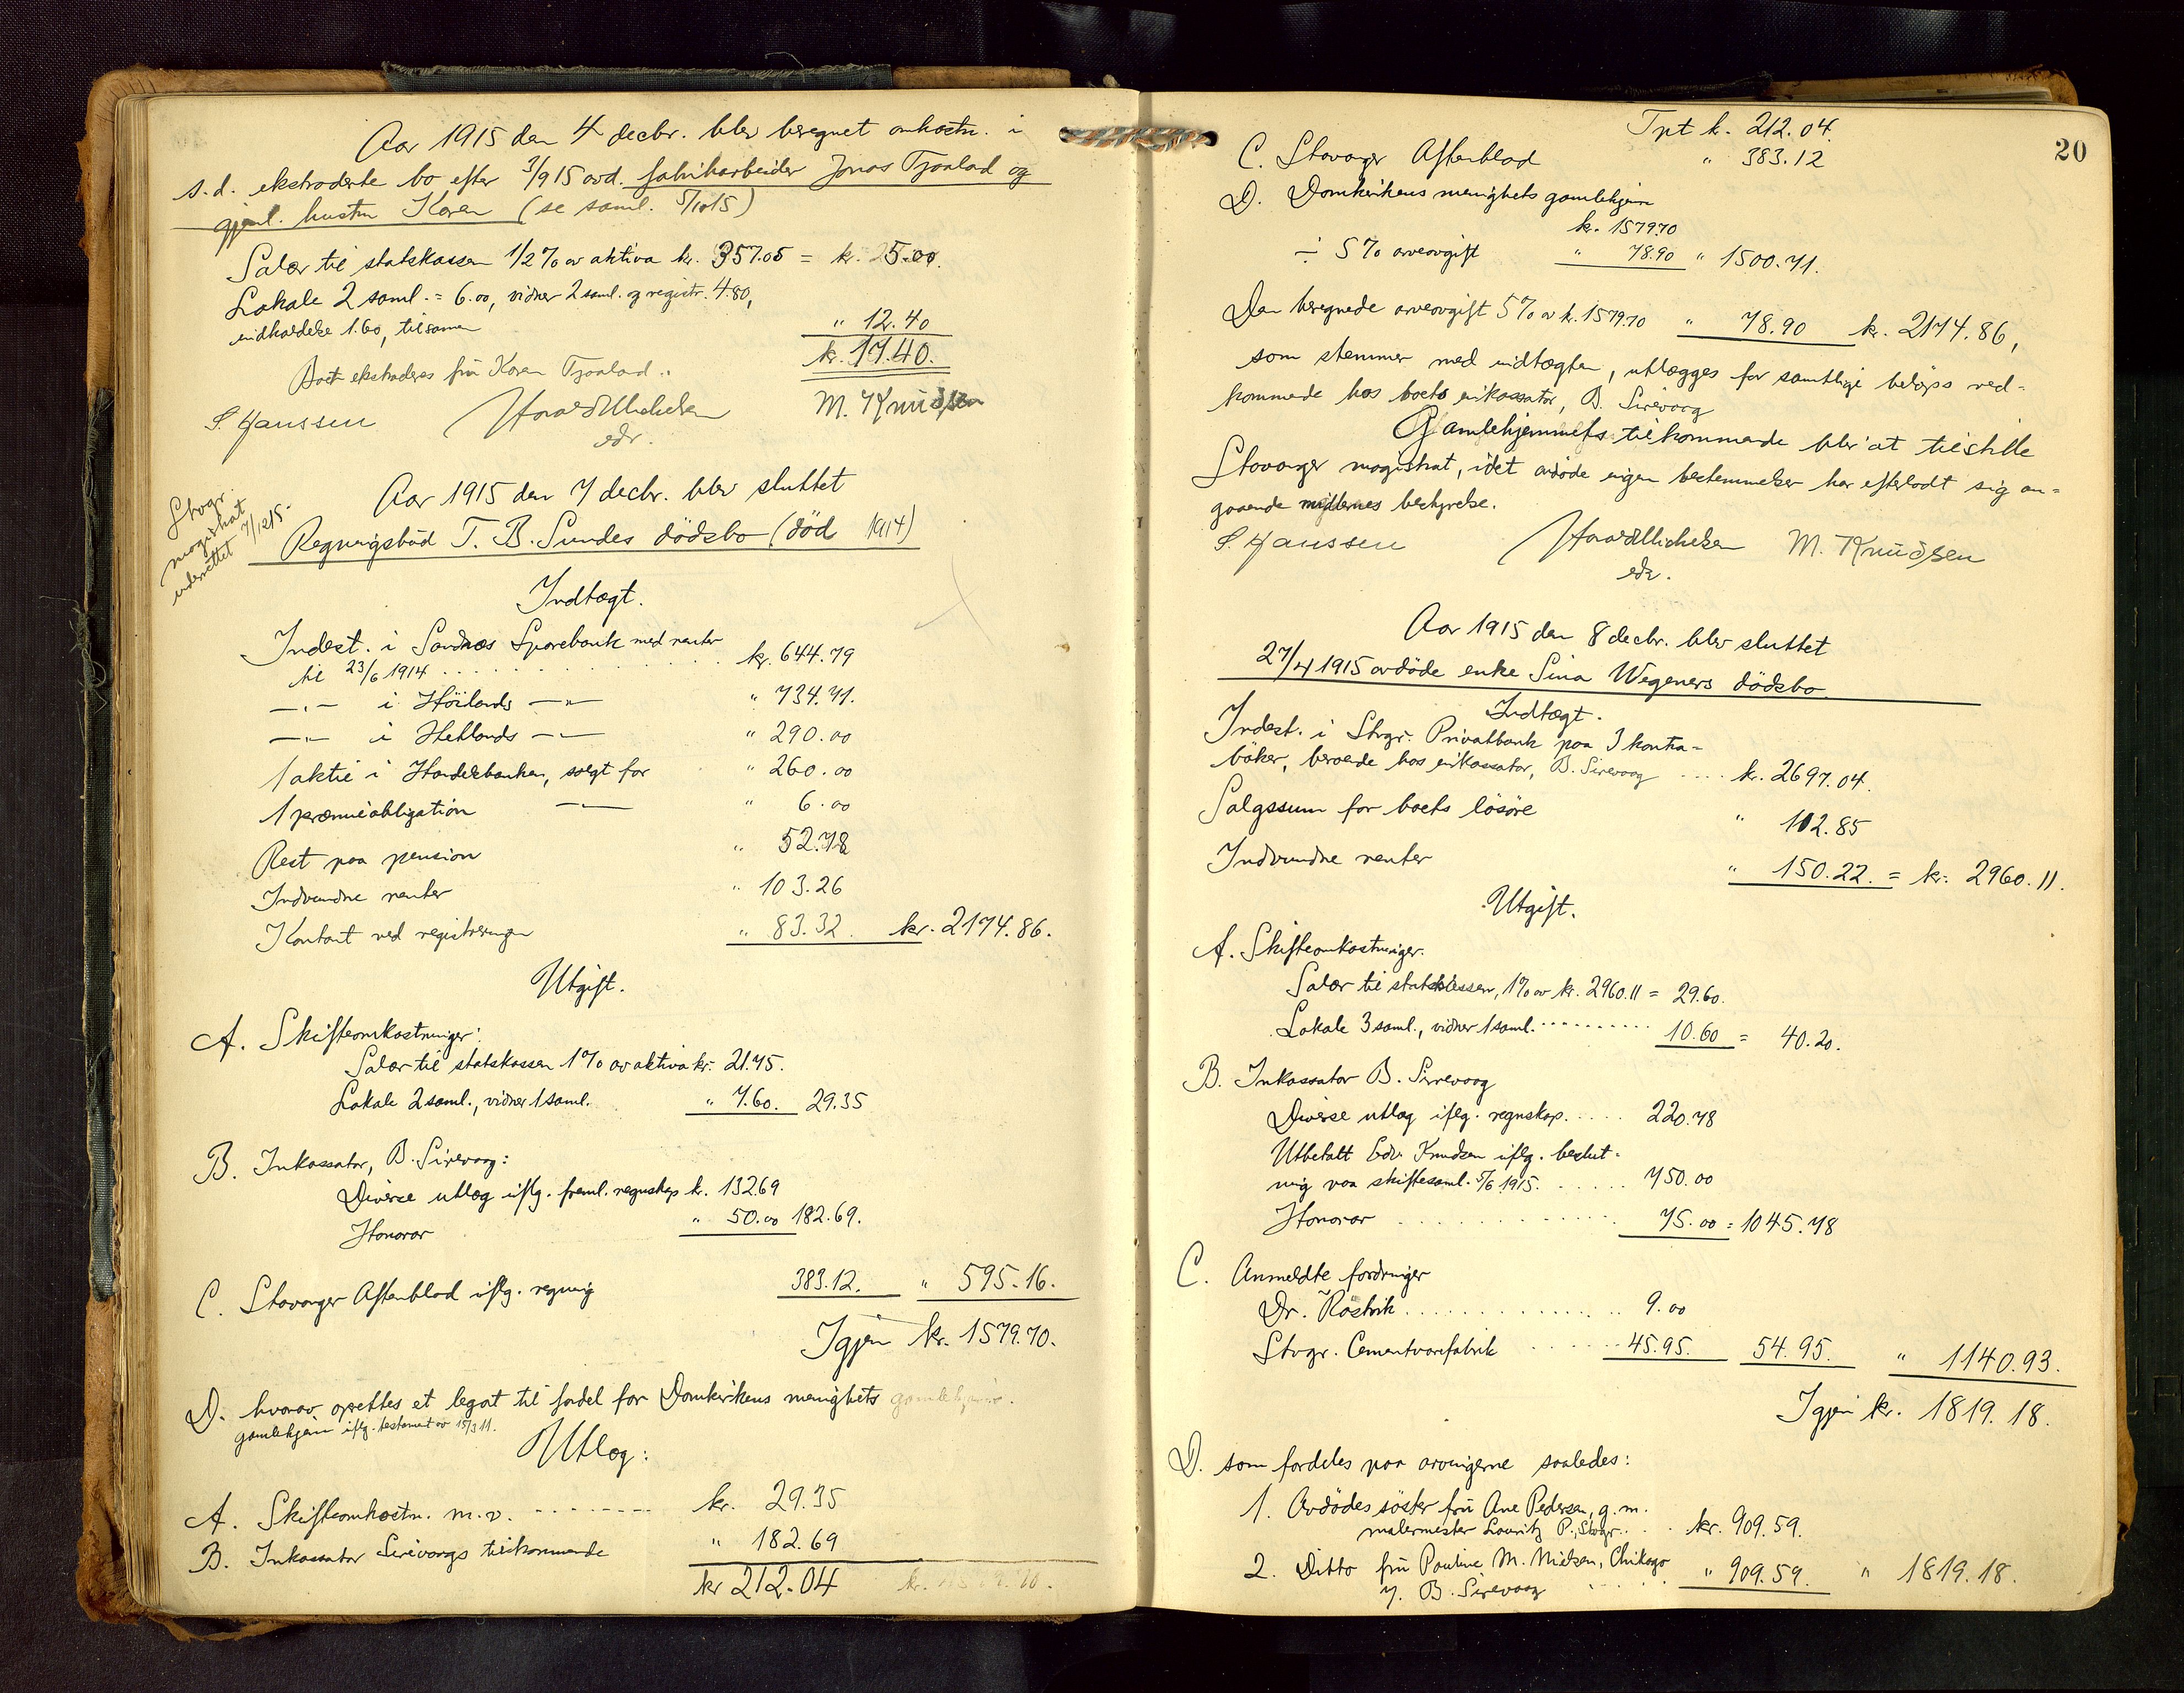 Aar 1915 den 4 decbr. blev beregnet omkostn. i
s.d. ekstraderte bo efter 3/9 15 avd. fabrikarbeider Jonas Tjaalad og
gjenl. hustru Karen (se saml. 5/10 15)
Salær til statskassen 1/2 % av aktiva kr. 357.05 = kr. 5.00.
Lokale 2 saml. = 6.00, vidner 2 saml. og registr. 4.80,
indkaldelse 1.60, tilsamen " 12.40
kr. 17.40.
Boet ekstraderes fru Karen Tjaalad.
S. Hanssen M. Knudsen
edr.
Stvgr.
magistrat
underrettet 7/12 15.
Aar 1915 den 7 decbr. blev sluttet
Regningsbud T. B. Sundes dödsbo (död 1914)
Indtægt.
Indest. i Sandnæs Sparebank med renter
til 23/6 1914 . . . . . . kr. 644.79
—"— i Höilands —"— " 734.71.
—"— i Hetlands —"— " 290.00
1 aktie i Handelsbanken, solgt for " 260.00
1 præmieobligation —"— " 6.00
Rest paa pension " 52.78
Indvundne renter " 103.26
Kontant ved registreringen " 83.32. kr. 2174.86.
Utgift.
A. Skifteomkostninger:
Salær til statskassen 1 % av aktiva kr. 21.75.
Lokale 2 saml., vidner 1 saml. " 7.60. 29.35
B. Inkassator, B. Sirevaag:
Diverse utlæg iflg. freml. regnskap kr. 132.69
Honorar " 50.00 182.69.
C. Stavanger Aftenblad iflg. regning 383.12. " 595.16.
Igjen kr. 1579.70.
D. hvorav oprettes et legat til fordel for Domkirkens menighets gamlehjem.
gamlehjem iflg. testament av 15/3 11.
Utlæg:
A. Skifteomkostn. m.v. . . . . . . kr. 29.35
B. Inkassator Sirevaags tilkommende " 182.69
kr 212.04
20
Tpt k. 212.04.
C. Stavanger Aftenblad " 383.12
D. Domkirkens menighets gamlehjem
kr. 1579.70
÷ 5 % arveavgift " 78.90 " 1500.71.
Den beregnede arveavgift 5 % av k. 1579.70 " 78.90 kr. 2174.86,
som stemmer med indtægten, utlægges for samtlige beløps ved-
kommende hos boets inkassator, B. Sirevaag
Gamlehjemmets tilkommende blir at tilstille
Stavanger magistrat, idet avdöde ingen bestemmelser har efterladt sig an-
gaaende midlernes bestyrelse.
S. Hanssen M. Knudsen
edr.
Aar 1915 den 8 decbr. blev sluttet
27/4 1915 avdöde enke Sina Wegeners dödsbo
Indtægt.
Indest. i Stvgr. Privatbank paa 3 kontra-
böker, beroende hos inkassator, B. Sirevaag . . . . kr. 2697.04.
Salgssum for boets lösöre " 112.85
Indvundne renter " 150.22. = kr. 2960.11.
Utgift.
A. Skifteomkostninger.
Salær til statskassen, 1 % av kr. 2960.11 = 29.60.
Lokale 3 saml., vidner 1 saml. . . . . . . 10.60 = 40.20.
B. Inkassator B. Sirevaag
Diverse utlæg iflg. regnskap. . . . . 220.78
Utbetalt Edv. Knudsen iflg. beslut-
ning paa skiftesaml. 5/6 1915. . . . . . 750.00
Honorar . . . . . . . . . 75.00 = 1045.78
C. Anmeldte fordringer
Dr. Röstvik . . . . . . . . . . 9.00
Stvgr. Cementvarefabrik . . . . . . 45.95. 54.95. " 1140.93.
Igjen kr. 1819.18.
D. som fordeles paa arvingerne saaledes:
1. Avdödes söster fru Ane Pedersen, g.m.
malermester Lauritz P., Stvgr. . . kr. 909.59.
2. Ditto fru Pauline M. Nielsen, Chikago
v. B. Sirevaag . . . . . " 909.59. " 1819.18.